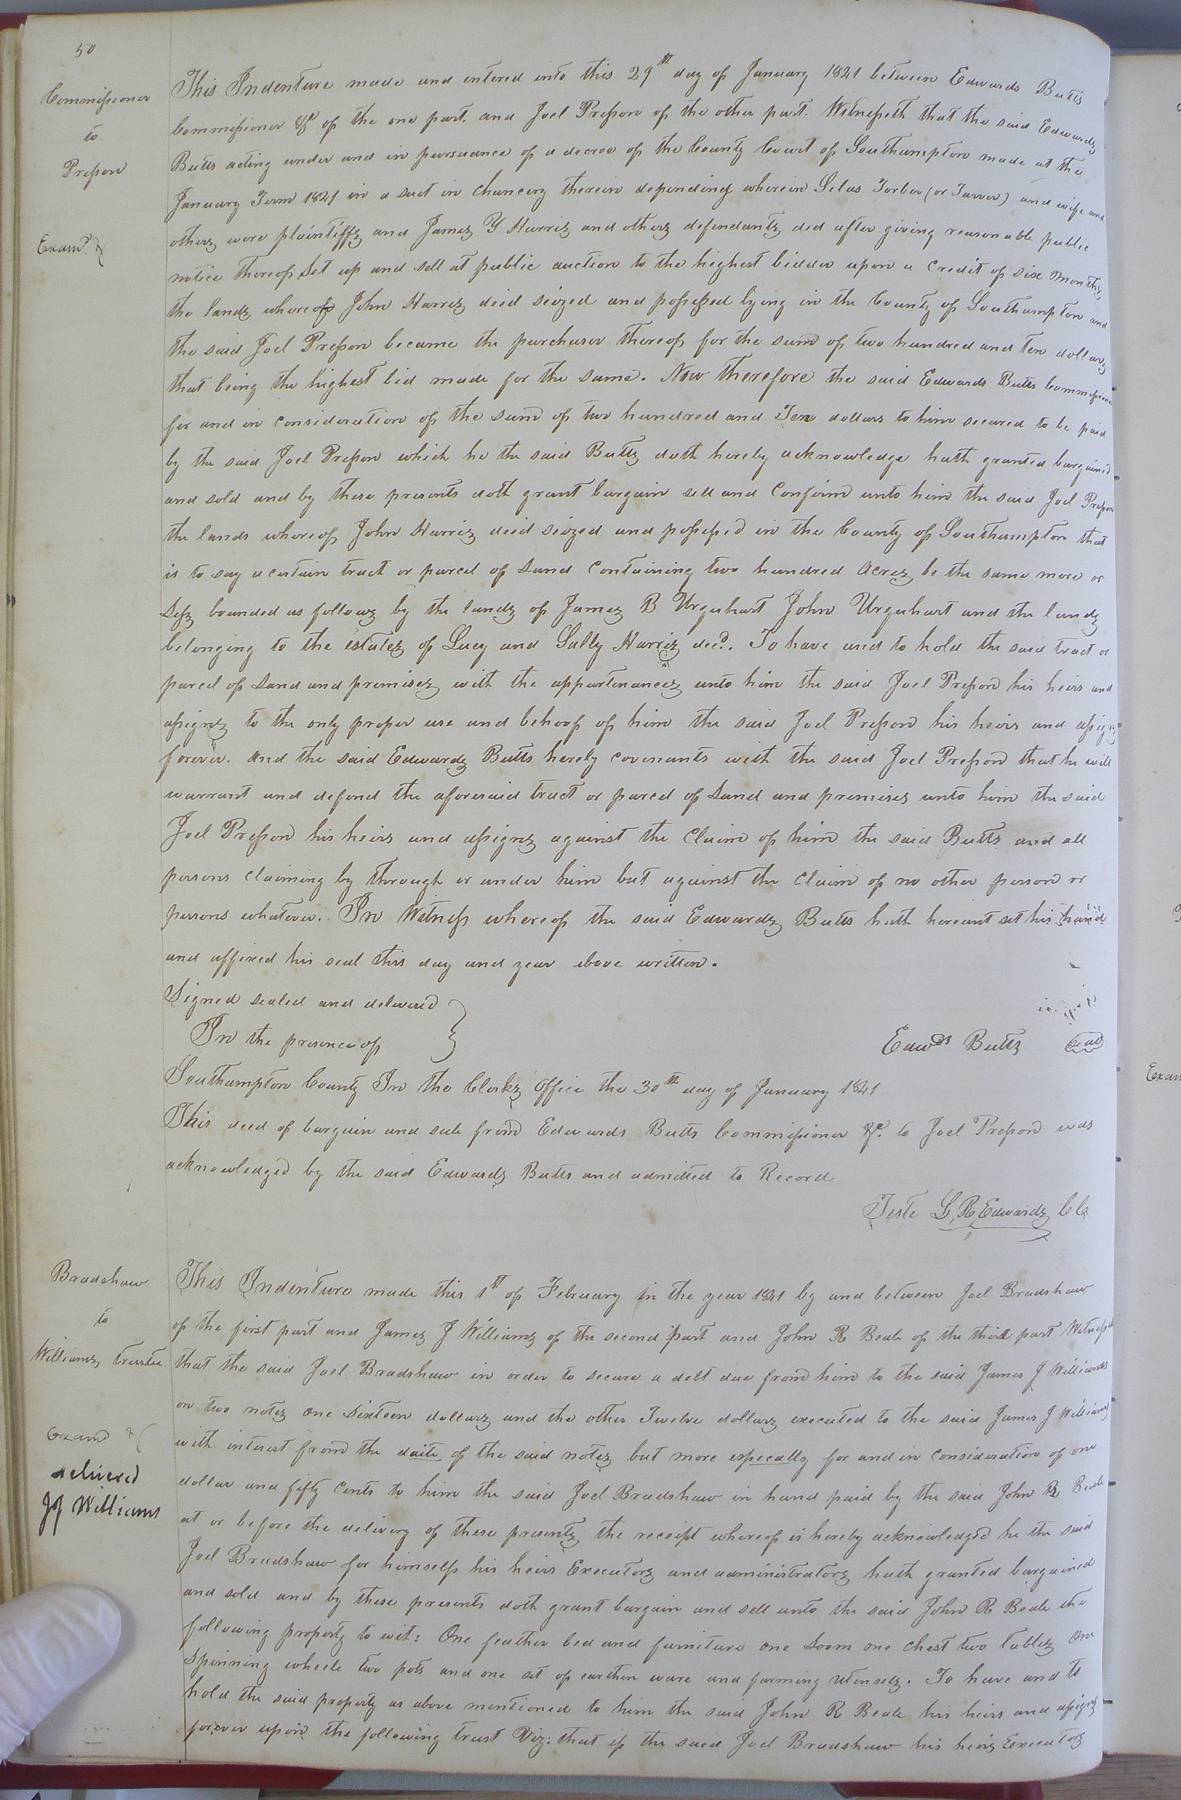 50
Commissioner
to
Presson
Exam.d &
This Indenture made and entered into this 29th day of January 1821 between Edwards Butts
Commissioner &c of the one part and Joel Presson of the other part. Witnesseth that the said Edwards
Butts acting under and in pursuance of a decree of the County Court of Southampton made at the
January Term 1821 in a suit in chancery therein depending wherein Silas Torber (or Tarver) and wife and
others were plaintiffs and James Y Harris and others defendants did after giving reasonable public
notice thereof set up and sell at public auction to the highest bidder upon a credit of six months
the lands whereof John Harris died seized and possessed lying in the County of Southampton and
the said Joel Presson became the purchaser thereof for the sum of two hundred and ten dollars
that being the highest bid made for the same. Now therefore the said Edwards Butts Commissioner
for and in consideration of the sum of two hundred and Ten dollars to him secured to be paid
by the said Joel Presson which he the said Butts doth hereby acknowledge hath granted bargained
and sold and by these presents doth grant bargain sell and confirm unto him the said Joel Presson
the lands whereof John Harris died seized and possess'd in the County of Southampton that
is to say a certain tract or parcel of Land containing two hundred Acres be the same more or
Less bounded as follows by the lands of James B Urquhart John Urquhart and the lands
belonging to the estates of Lucy and Sally Harris decd. To have and to hold the said tract or
parcel of Land and premises with the appurtenances unto him the said Joel Presson his heirs and
assigns to the only proper use and behoof of him the said Joel Presson his heirs and assigns
forever. And the said Edwards Butts hereby covenants with the said Joel Presson that he will
warrant and defend the aforesaid tract or parcel of Land and premises unto him the said
Joel Presson his heirs and assigns against the Claim of him the said Butts and all
persons claiming by through or under him but against the claim of no other person or
persons whatever. In Witness whereof the said Edwards Butts hath hereunt set his hand
and affixed his seal this day and year above written.
Signed sealed and delivered }
In the presence of
Edwds Butts seal
Southampton County In the Clerks Office the 30th day of January 1821
This deed of bargain and sale from Edwards Butts Commissioner &c. to Joel Presson was
acknowledged by the said Edwards Butts and admitted to Record
Teste L. R. Edwards CC
Bradshaw
to
Williams trustee
Examd &
delivered
JJ Williams
This Indenture made this 1st of February in the year 1821 by and between Joel Bradshaw
of the first part and James J Williams of the second part and John R Beale of the third part Witnesseth
that the said Joel Bradshaw in order to secure a debt due from him to the said James J Williams
on two notes one Sixteen dollars and the other Twelve dollars executed to the said James J Williams
with interest from the daite of the said notes but more especally for and in consideration of one
dollar and fifty Cents to him the said Joel Bradshaw in hand paid by the said John R Beale
at or before the delivery of these presents the receipt whereof is hereby acknowledged he the said
Joel Bradshaw for himself his heirs Executors and administrators hath granted bargained
and sold and by these presents doth grant bargain and sell unto the said John R Beale the
following property to wit: One feather bed and furniture one Loom one chest two tables One
Spinning wheele two pots and one set of earthen ware and farming utensels. To have and to
hold the said property as above mentioned to him the said John R Beale his heirs and assigns
forever upon the following trust Viz: that if the said Joel Bradshaw his heirs Executors